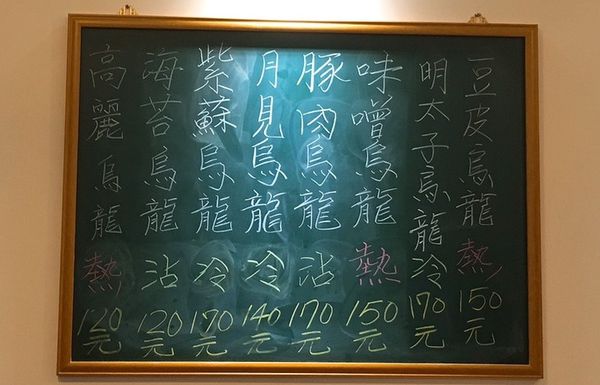 豆皮烏龍熱150元
明太子烏龍冷170元
味噌烏龍熱150元
豚肉烏龍沾170元
月見烏龍冷140元
紫蘇烏龍冷170元
海苔烏龍沾120元
高麗烏龍熱120元